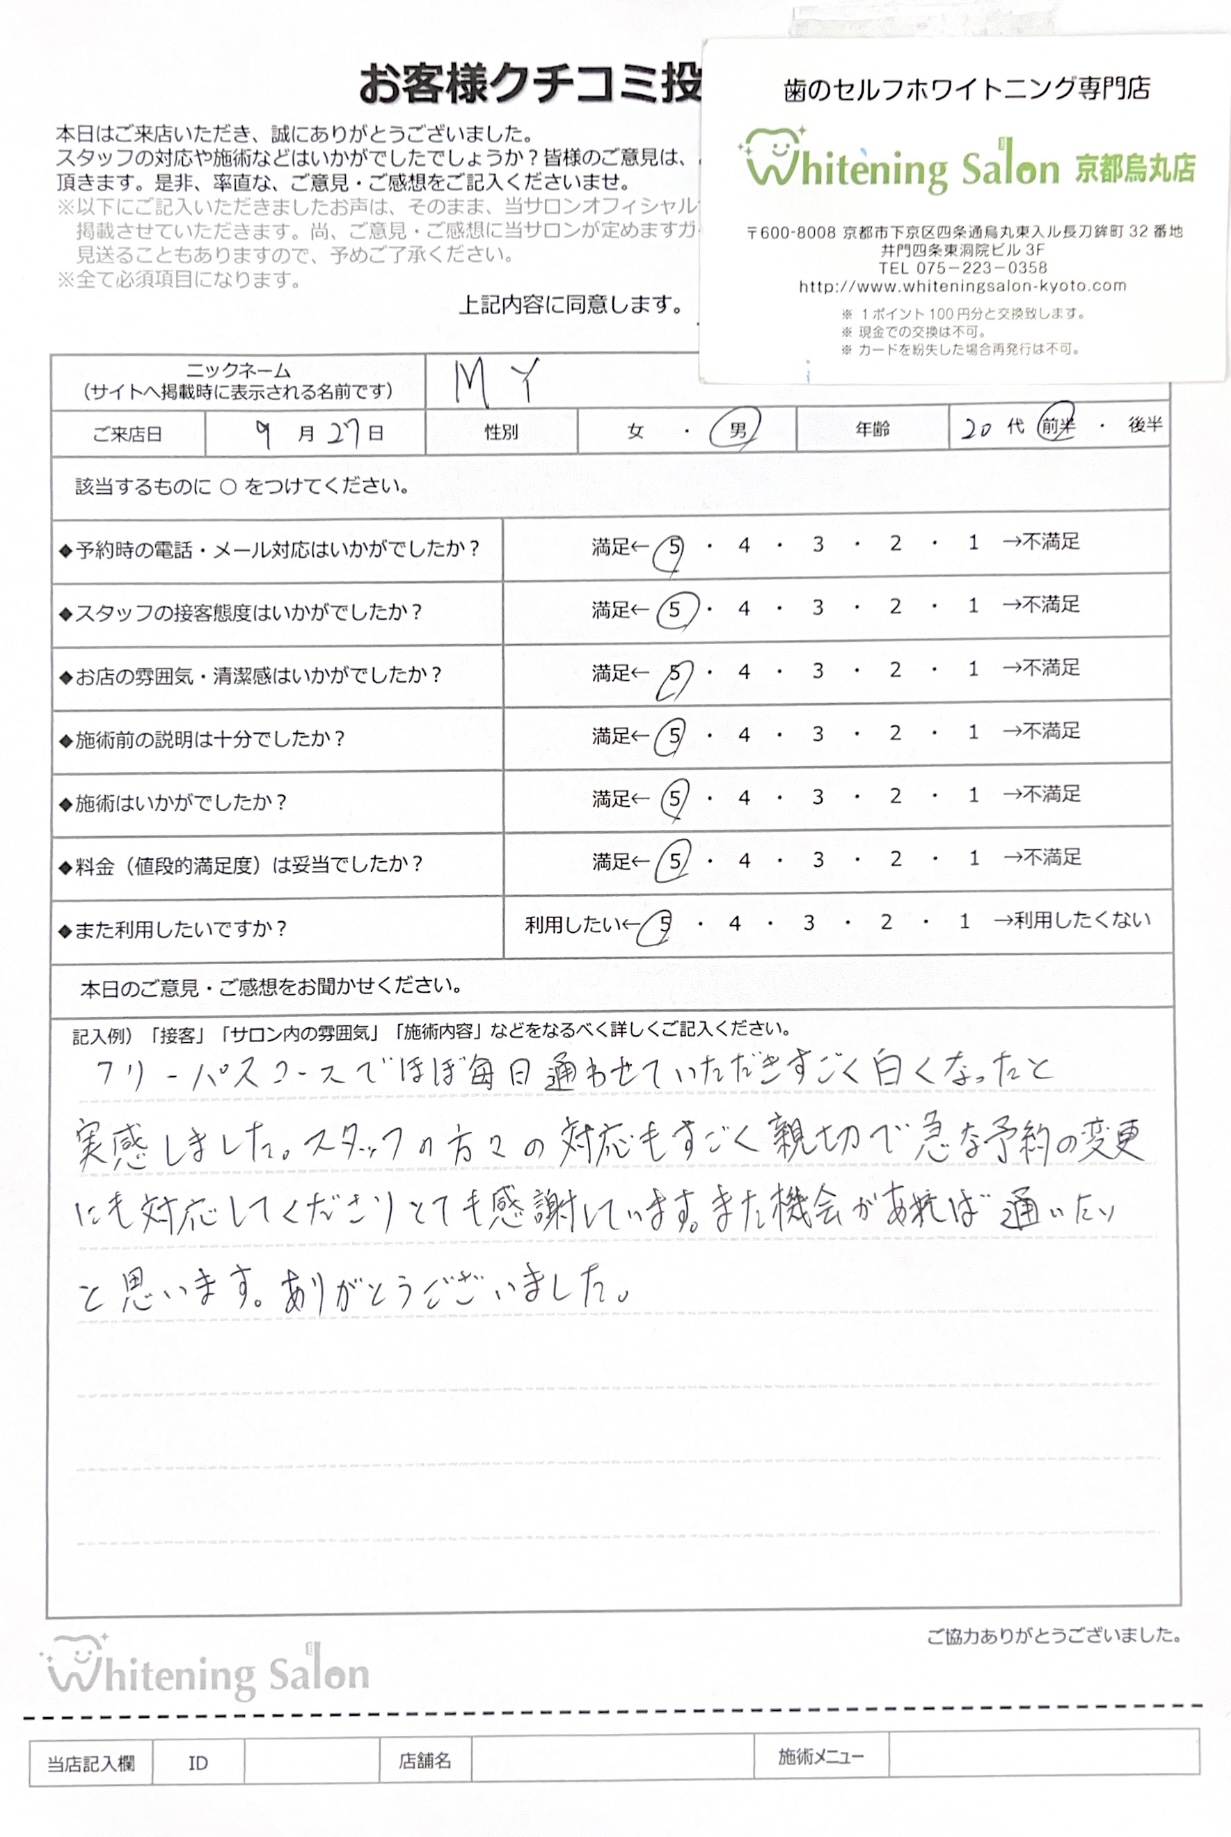 お客様クチコミ投
本日はご来店いただき、誠にありがとうございました。
スタッフの対応や施術などはいかがでしたでしょうか?皆様のご意見は、
頂きます。是非、率直な、ご意見・ご感想をご記入くださいませ。
※以下にご記入いただきましたお声は、そのまま、当サロンオフィシャル
掲載させていただきます。尚、ご意見・ご感想に当サロンが定めますガ
見送ることもありますので、予めご了承ください。
※全て必須項目になります。
上記内容に同意します。
歯のセルフホワイトニング専門店
Whitening Salon 京都烏丸店
〒600-8008 京都市下京区四条通烏丸東入ル長刀鉾町 32 番地
井門四条東洞院ビル 3F
TEL 075-223-0358
http://www.whiteningsalon-kyoto.com
※ 1ポイント100円分と交換致します。
※ 現金での交換は不可。
※ カードを紛失した場合再発行は不可。
ニックネーム
(サイトへ掲載時に表示される名前です) M Y
ご来店日 9 月 27 日 性別 女 ・ 男 年齢 20 代 前半 ・ 後半
該当するものに ○ をつけてください。
◆予約時の電話・メール対応はいかがでしたか? 満足← 5 ・ 4 ・ 3 ・ 2 ・ 1 →不満足
◆スタッフの接客態度はいかがでしたか? 満足← 5 ・ 4 ・ 3 ・ 2 ・ 1 →不満足
◆お店の雰囲気・清潔感はいかがでしたか? 満足← 5 ・ 4 ・ 3 ・ 2 ・ 1 →不満足
◆施術前の説明は十分でしたか? 満足← 5 ・ 4 ・ 3 ・ 2 ・ 1 →不満足
◆施術はいかがでしたか? 満足← 5 ・ 4 ・ 3 ・ 2 ・ 1 →不満足
◆料金(値段的満足度)は妥当でしたか? 満足← 5 ・ 4 ・ 3 ・ 2 ・ 1 →不満足
◆また利用したいですか? 利用したい← 5 ・ 4 ・ 3 ・ 2 ・ 1 →利用したくない
本日のご意見・ご感想をお聞かせください。
記入例)「接客」「サロン内の雰囲気」「施術内容」などをなるべく詳しくご記入ください。
フリーパスコースでほぼ毎日通わせていただきすごく白くなったと
実感しました。スタッフの方々の対応もすごく親切で急な予約の変更
にも対応してくださりとても感謝しています。また機会があれば通いたい
と思います。ありがとうございました。
ご協力ありがとうございました。
Whitening Salon
当店記入欄 ID 店舗名 施術メニュー